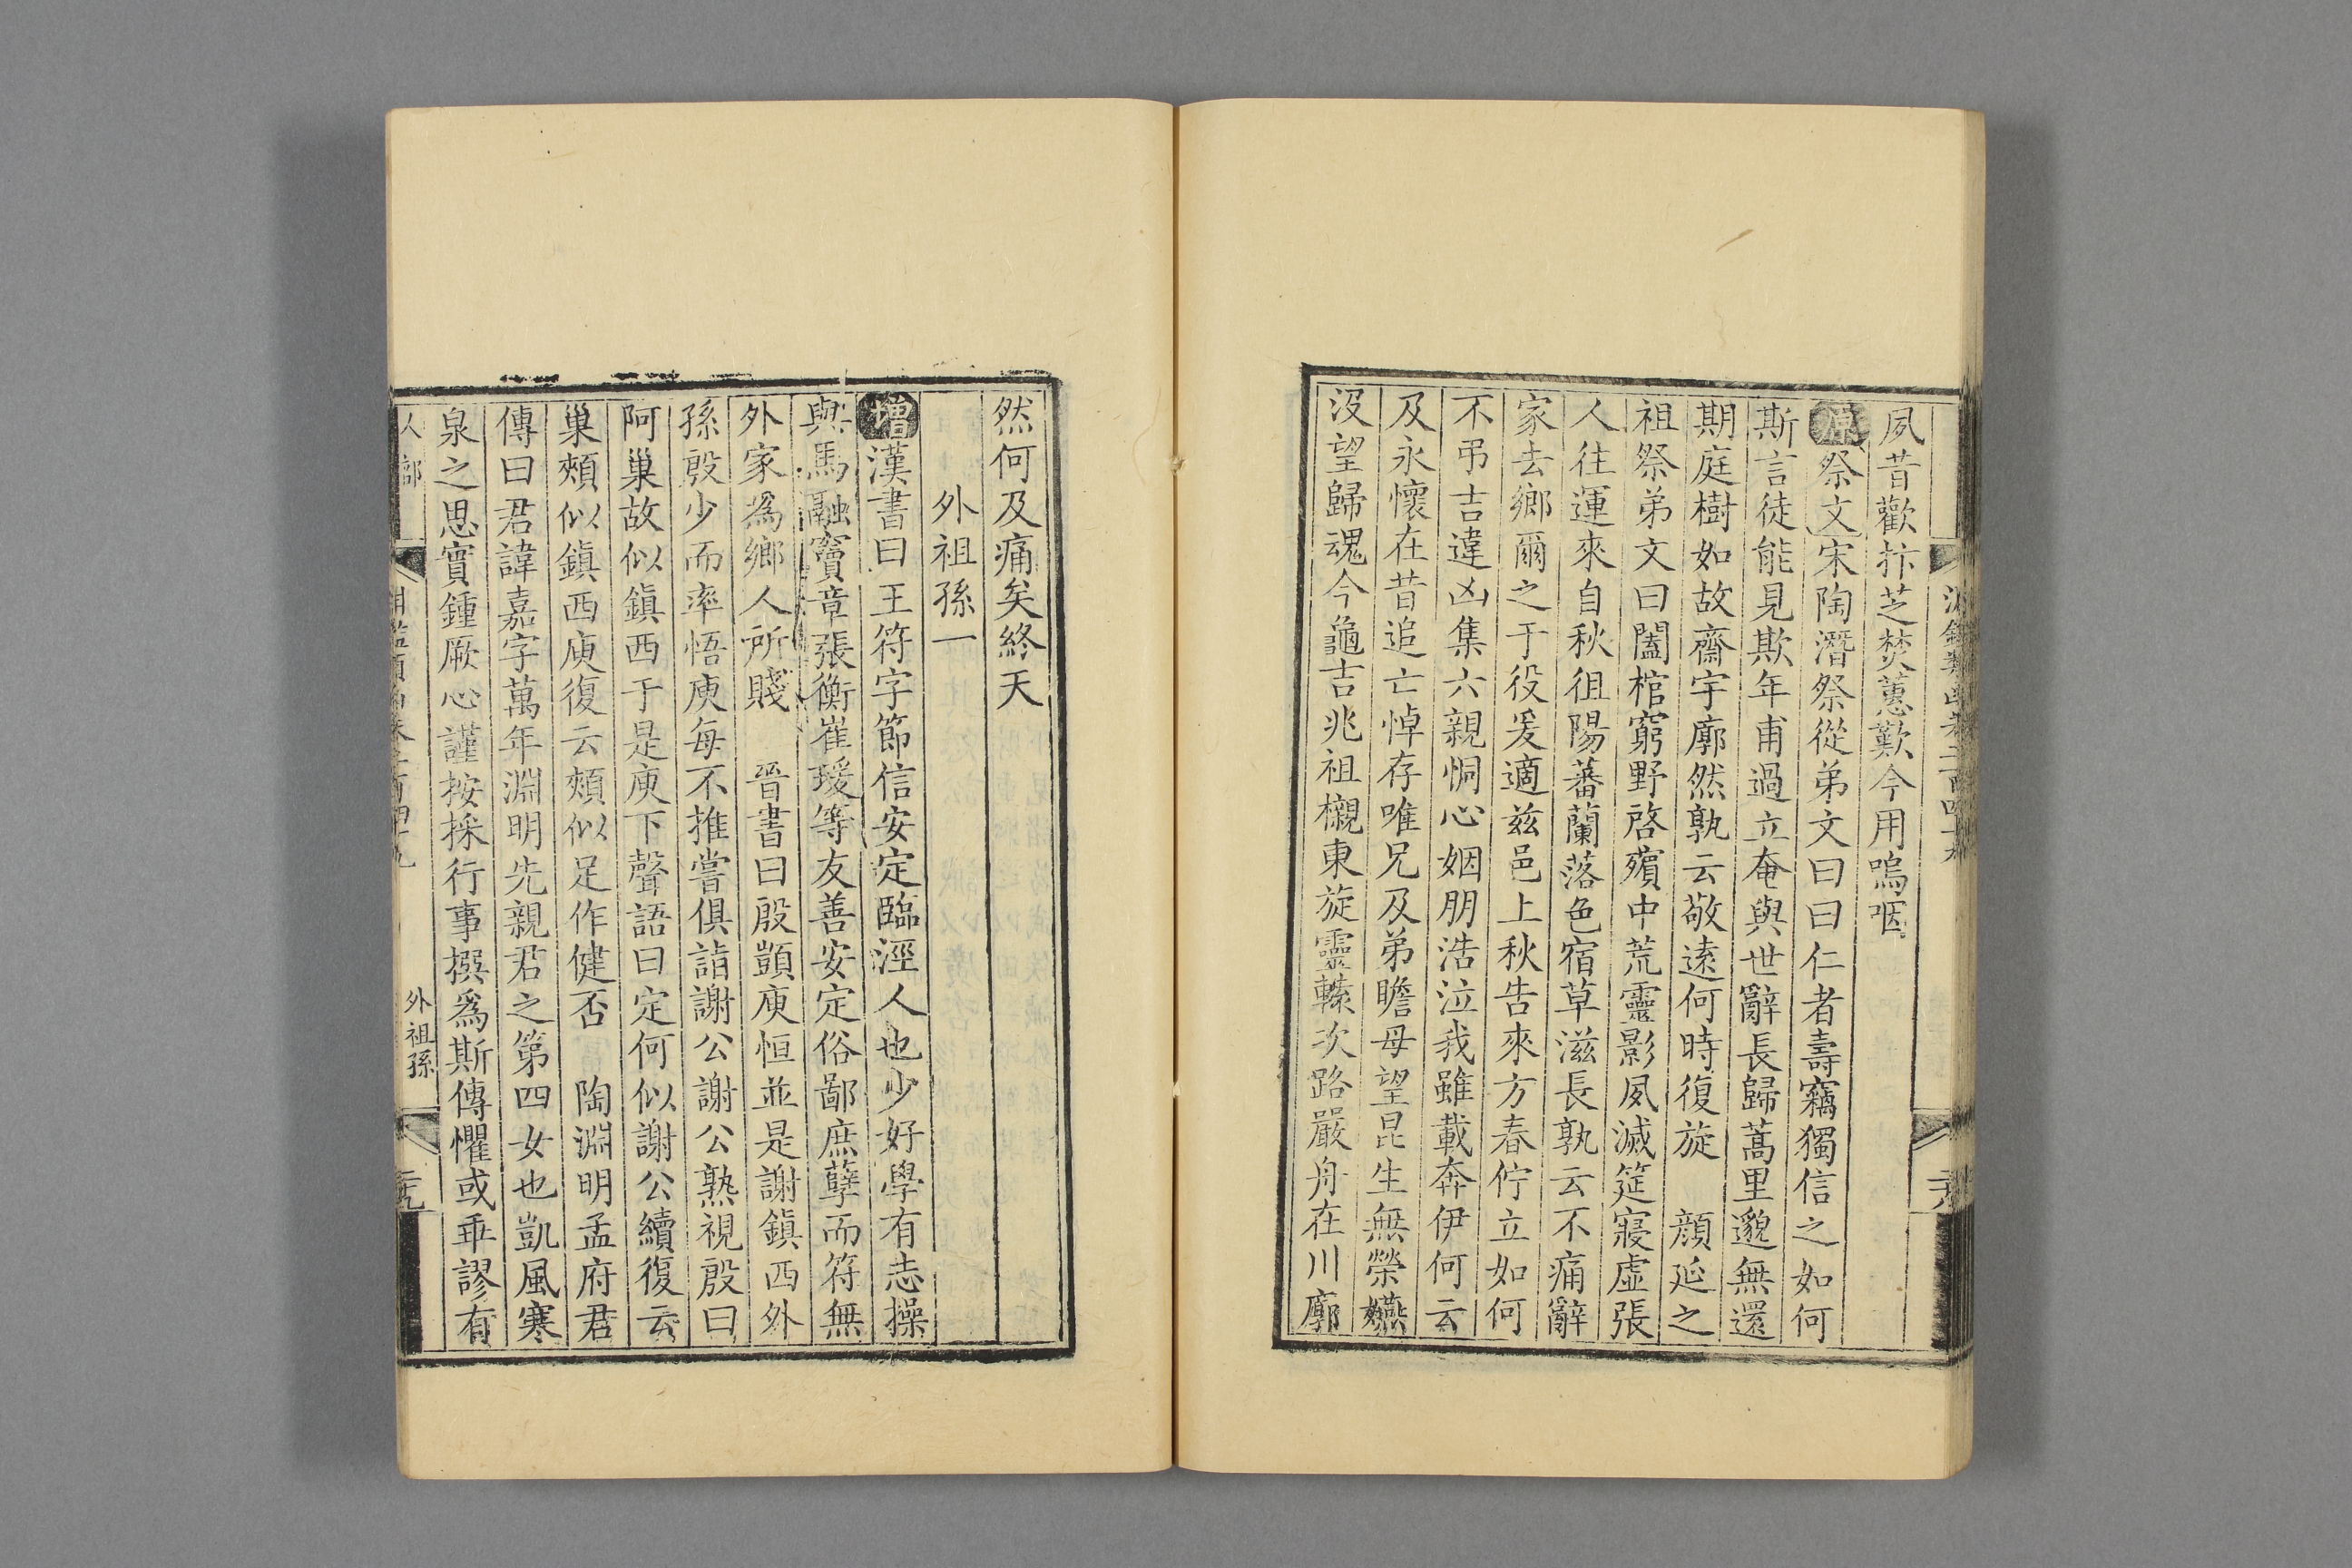 夙昔歡抃芝焚蕙歎今用嗚咽
原祭文宋陶潛祭從弟文曰曰仁者壽竊獨信之如何
斯言徒能見欺年甫過立奄與世辭長歸蒿里邈無還
期庭樹如故齋宇廓然孰云敬遠何時復旋　顏延之
祖祭弟文曰闔棺窮野啓殯中荒靈影夙滅筵寢虛張
人往運來自秋徂陽蕃蘭落色宿草滋長孰云不痛辭
家去鄉爾之于役爰適兹邑上秋告來方春佇立如何
不弔吉違凶集六親恫心姻朋浩泣我雖載奔伊何云
及永懷在昔追亡悼存唯兄及弟瞻母望昆生無榮嬿
沒望歸魂今龜吉兆祖櫬東旋靈轜次路嚴舟在川廓
然何及痛矣終天
外祖孫一
增漢書曰王符字節信安定臨涇人也少好學有志操
與馬融竇章張衡崔瑗等友善安定俗鄙庶孽而符無
外家爲鄉人所賤　晉書曰殷顗庾恒並是謝鎮西外
孫殷少而率悟庾每不推嘗俱詣謝公謝公熟視殷曰
阿巢故似鎮西于是庾下聲語曰定何似謝公續復云
巢頰似鎮西庾復云頰似足作健否　陶淵明孟府君
傳曰君諱嘉字萬年淵明先親君之第四女也凱風寒
泉之思實鍾厥心謹按採行事撰爲斯傳懼或乖謬有
人部
外祖孫